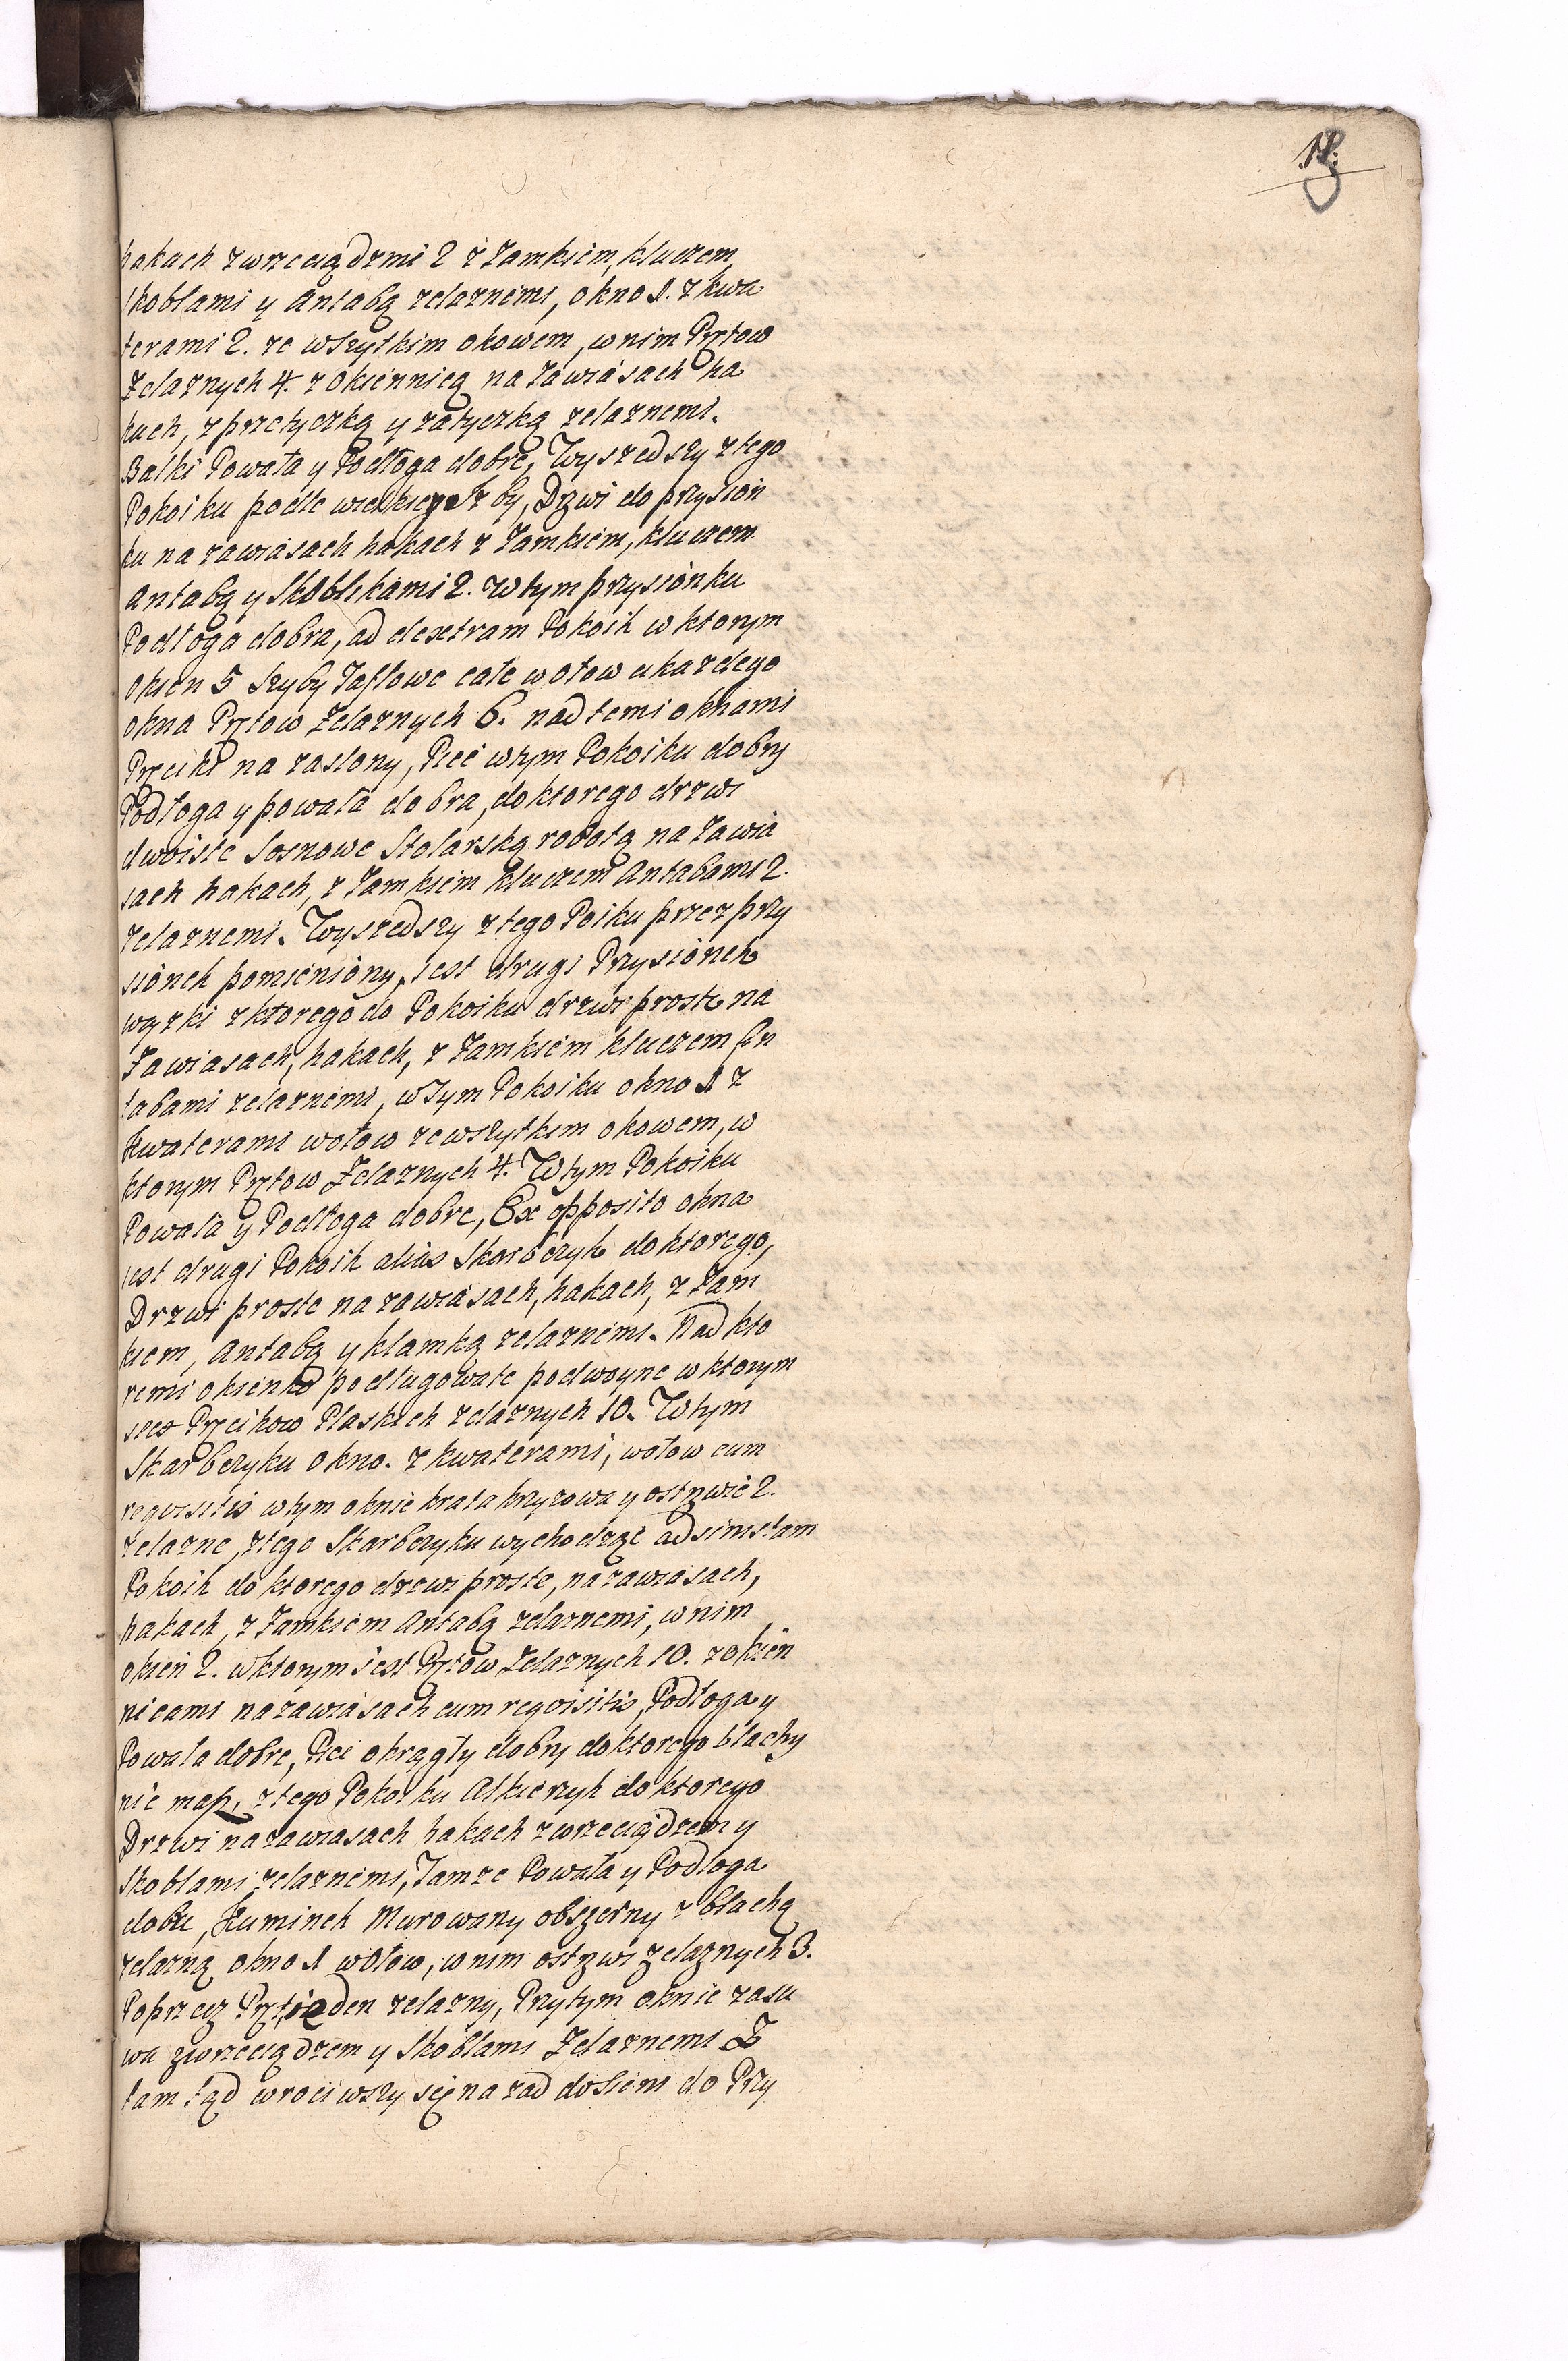 hakach z wrzeciądzmi 2 z Zamkiem, kluczem,
skoblami y Antabą zelaznemi, okno 1. z kwa
terami 2. ze wszytkim okowem, w nim Prętow
Zelaznych 4. z okiennicą na Zawiasach ha
kach, z przetyczką y zatyczką zelaznemi.
Balki Powała y Podłoga dobre, Wyszedszy z tego
Pokoiku podle wielkiey Izby, Drzwi do przysion
ku na zawiasach hakach z Zamkiem, kluczem
Antabą y Skoblikami 2. W tym przysionku
Podłoga dobra, ad dextram Pokoik w ktorym
okien 5 Szyby Taflowe całe w ołow u kazdego
okna Prętow Zelaznych 6. nad temi oknami
Pręciki na zaslony, Piec w tym Pokoiku dobry
Podłoga y powała dobra, do ktorego drzwi
dwoiste Sosnowe Stolarską robotą na Zawia
sach hakach, z Zamkiem kluczem Antabami 2.
zelaznemi. Wyszedszy z tego Poiku przez przy
sionek pomieniony, iest drugi Przysionek
wązki z ktorego do Pokoiku drzwi proste na
Zawiasach, hakach, z Zamkiem kluczem An
tabami zelaznemi, w Tym Pokoiku okno 1 z
kwaterami w ołow ze wszytkim okowem, w
ktorym Prętow Zelaznych 4. W tym Pokoiku
Powała y Podłoga dobre, Ex opposito okna
iest drugi Pokoik alias Skarbczyk do ktorego,
Drzwi proste na zawiasach, hakach, z Zam
kiem, Antabą y klamką zelaznemi. Nad kto
remi okienko podługowate podwoyne w ktorym
iest Pręcikow Plaskich zelaznych 10. W tym
Skarbczyku okno. z kwaterami, w ołow cum
reqvisitis w tym oknie krata krzyzowa y ostrzwie 2.
zelazne, z tego Skarbczyku wychodząc ad sinistam
Pokoik do ktorego drzwi proste, na zawiasach,
hakach, z Zamkiem Antabą zelaznemi, w nim
okien 2. w ktorym iest Prętow Zelaznych 10. z okien
nicami na zawiasach cum reqvisitis, Podłoga y
Powała dobre, Piec okrągły dobry do ktorego blachy
nie masz, z tego Pokoiku Alkierzyk do ktorego
Drzwi na zawiasach hakach z wrzeciądzem y
Skoblami zelaznemi, Tamze Powała y Podłoga
dobre, Kuminek Murowany obszerny z blachą
zelazną okno 1 w ołow, w nim ostrzwi zelaznych 3.
Poprzecz Pręt ieden zelazny, Przy tym oknie zasu
wa z wrzeciądzem y Skoblami Zelaznemi Z
tam tąd wrociwszy się na zad do Sieni do Przy